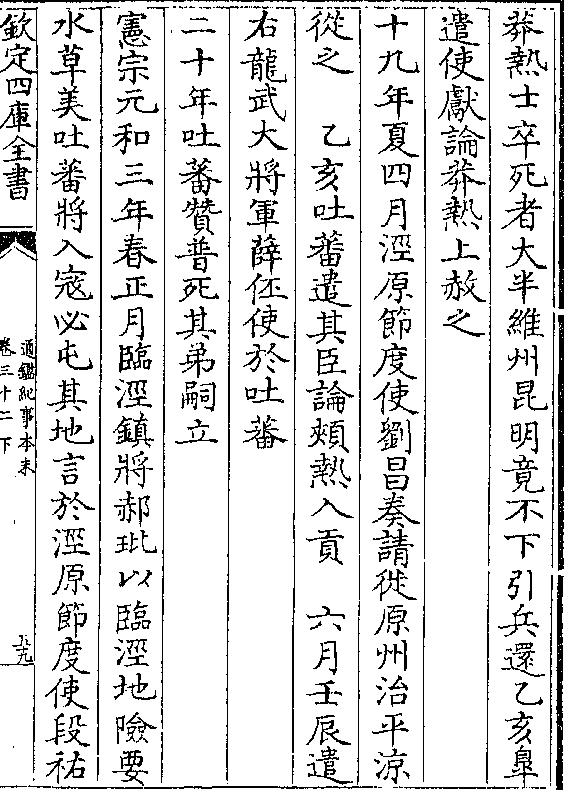 莽熱士卒死者大半維州昆明竟不下引兵還乙亥臯
遣使獻論莽熱上赦之
十九年夏四月涇原節度使劉昌奏請徙原州治平涼
從之　乙亥吐蕃遣其臣論頰熱入貢　六月壬辰遣
右龍武大將軍薛伾使於吐蕃
二十年吐蕃贊普死其弟嗣立
憲宗元和三年春正月臨涇鎮將郝玼以臨涇地險要
水草美吐蕃將入寇必屯其地言於涇原節度使段祐
欽定四庫全書
通鑑紀事本末
卷三十二下
五九